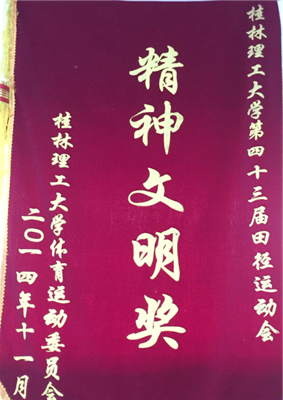 桂林理工大学第四十三届田径运动会
精神文明奖
桂林理工大学体育运动委员会
二〇一四年十一月